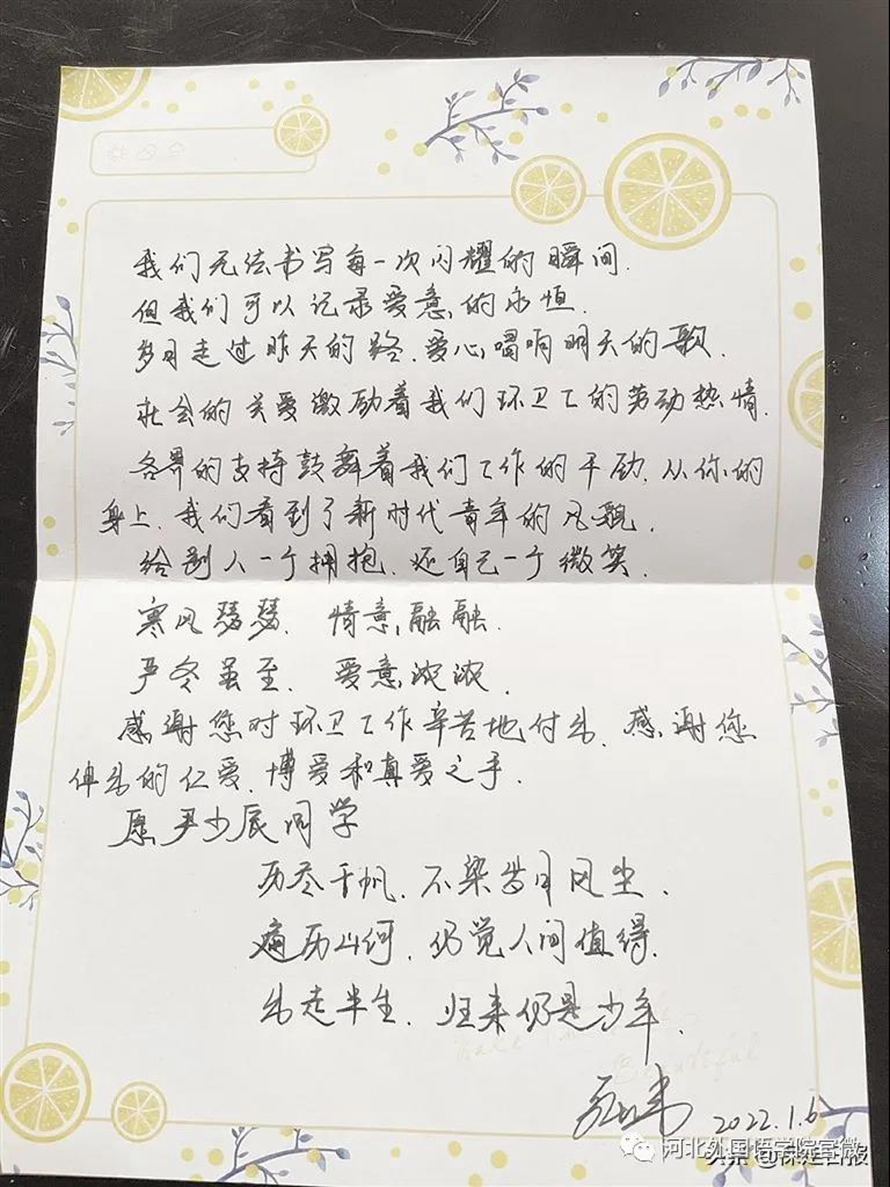 我们无法书写每一次闪耀的瞬间.
但我们可以记录爱意的永恒.
岁月走过昨天的路.爱心唱响明天的歌.
社会的关爱激励着我们环卫工的劳动热情.
各界的支持鼓舞着我们工作的干劲.从你的
身上.我们看到了新时代青年的风貌.
给别人一个拥抱.还自己一个微笑.
寒风瑟瑟. 情意融融.
严冬虽至. 爱意浓浓.
感谢您对环卫工作辛苦地付出.感谢您
伸出的仁爱.博爱和真爱之手.
愿尹少辰同学
历尽千帆.不染岁月风尘.
遍历山河.仍觉人间值得.
出走半生.归来仍是少年.
2022.1.6
河北外国语学院官微